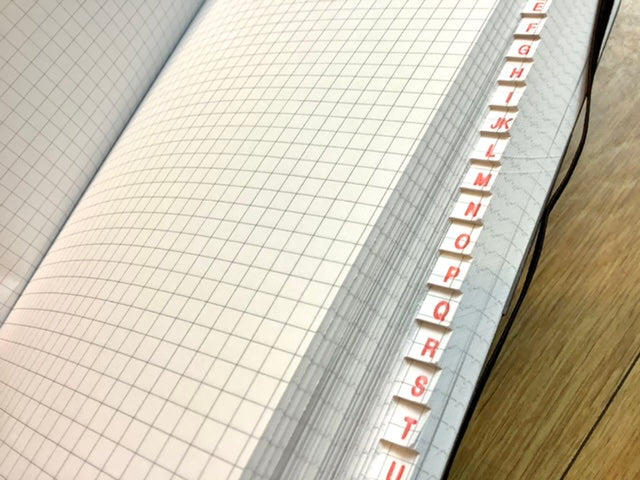 E
F
G
H
I
JK
L
M
N
O
P
Q
R
S
T
U